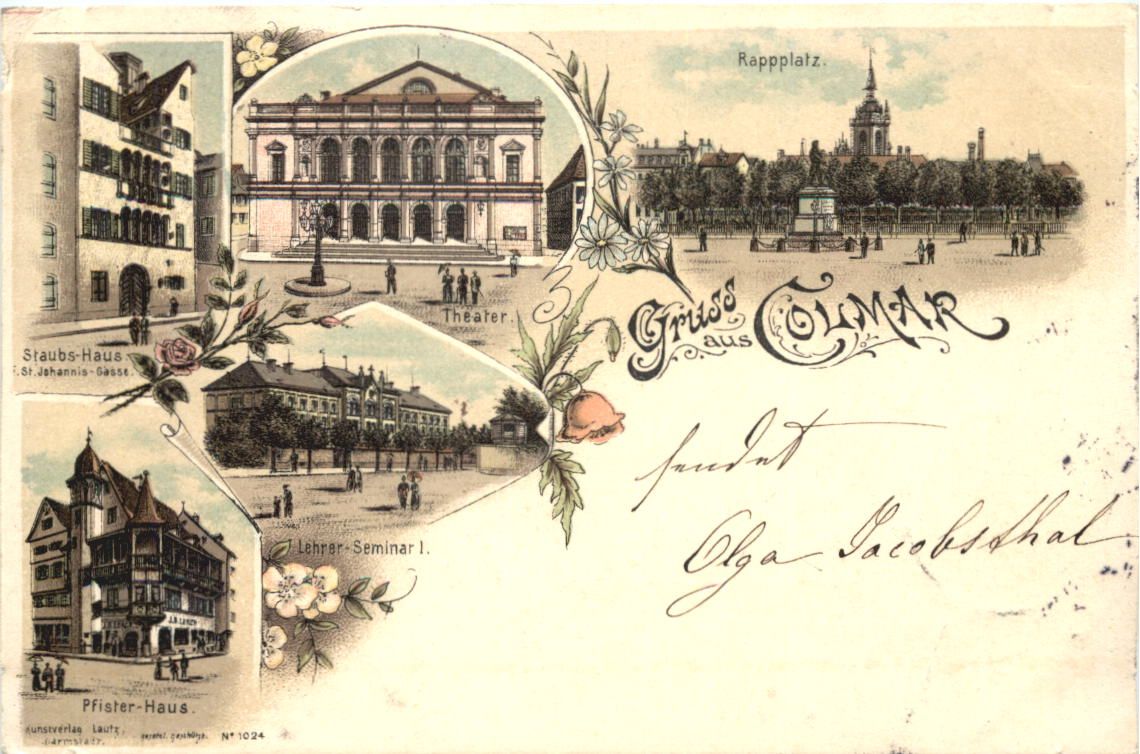 Rappplatz.
Theater.
Gruss
aus COLMAR
Staubs-Haus
i. St. Johannis-Gasse.
sendet
Olga Jacobsthal
Lehrer-Seminar I.
J.B. LANG
Pfister-Haus.
Kunstverlag Lautz,
Darmstadt.
gesetzl. geschützt. Nº 1024